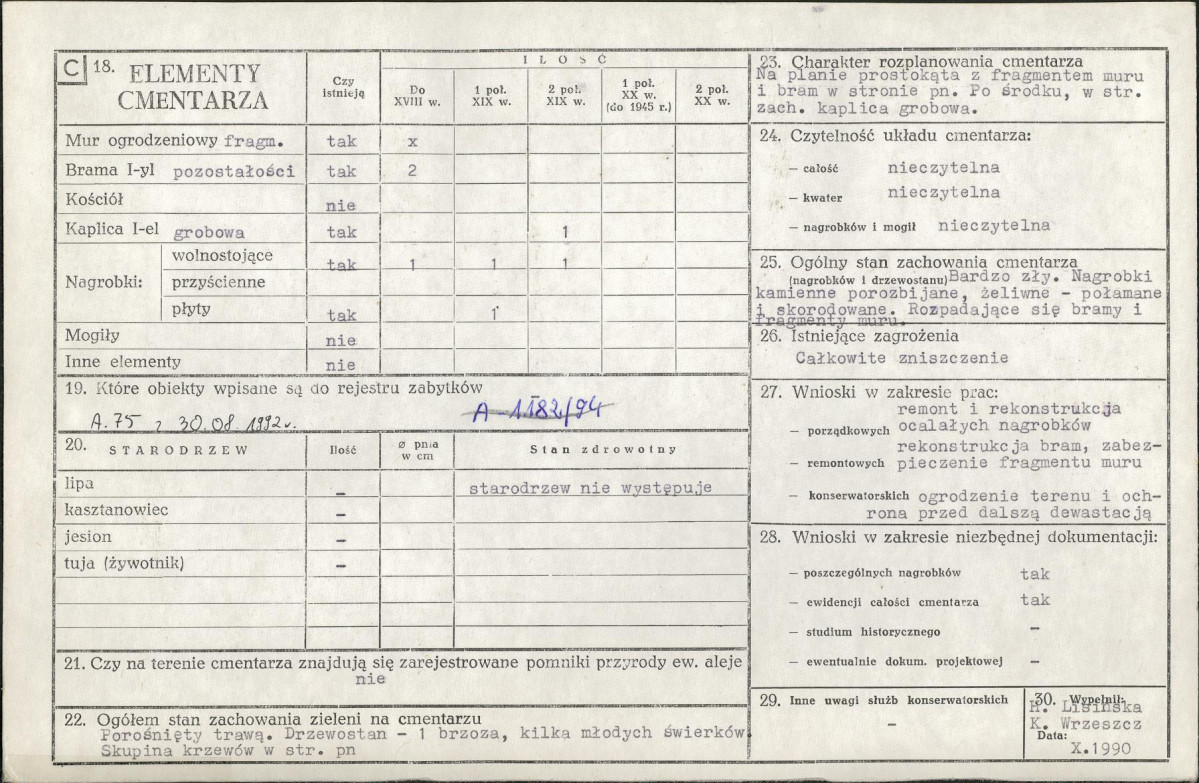 C 18. ELEMENTY CMENTARZA
Czy istnieją
ILOŚĆ
Do XVIII w.
1 poł. XIX w.
2 poł. XIX w.
1 poł. XX w. (do 1945 r.)
2 poł. XX w.
Mur ogrodzeniowy fragm. tak x
Brama I-yl pozostałości tak 2
Kościół nie
Kaplica I-el grobowa tak 1
Nagrobki:
wolnostojące tak 1 1 1
przyścienne
płyty tak 1
Mogiły nie
Inne elementy nie
19. Które obiekty wpisane są do rejestru zabytków
A.75 z 30.08.1992r. A-1182/94
20. STARODRZEW Ilość ø pnia w cm Stan zdrowotny
lipa – starodrzew nie występuje
kasztanowiec –
jesion –
tuja (żywotnik) –
21. Czy na terenie cmentarza znajdują się zarejestrowane pomniki przyrody ew. aleje
nie
22. Ogółem stan zachowania zieleni na cmentarzu
Porośnięty trawą. Drzewostan - 1 brzoza, kilka młodych świerków.
Skupina krzewów w str. pn
23. Charakter rozplanowania cmentarza
Na planie prostokąta z fragmentem muru
i bram w stronie pn. Po środku, w str.
zach. kaplica grobowa.
24. Czytelność układu cmentarza:
– całość nieczytelna
– kwater nieczytelna
– nagrobków i mogił nieczytelna
25. Ogólny stan zachowania cmentarza
(nagrobków i drzewostanu) Bardzo zły. Nagrobki
kamienne porozbijane, żeliwne - połamane
i skorodowane. Rozpadające się bramy i
fragmenty muru.
26. Istniejące zagrożenia
Całkowite zniszczenie
27. Wnioski w zakresie prac:
remont i rekonstrukcja
– porządkowych ocalałych nagrobków
rekonstrukcja bram, zabez-
– remontowych pieczenie fragmentu muru
– konserwatorskich ogrodzenie terenu i och-
rona przed dalszą dewastacją
28. Wnioski w zakresie niezbędnej dokumentacji:
– poszczególnych nagrobków tak
– ewidencji całości cmentarza tak
– studium historycznego –
– ewentualnie dokum. projektowej –
29. Inne uwagi służb konserwatorskich
–
30. Wypełnił:
H. Lisińska
K. Wrzeszcz
Data:
X.1990